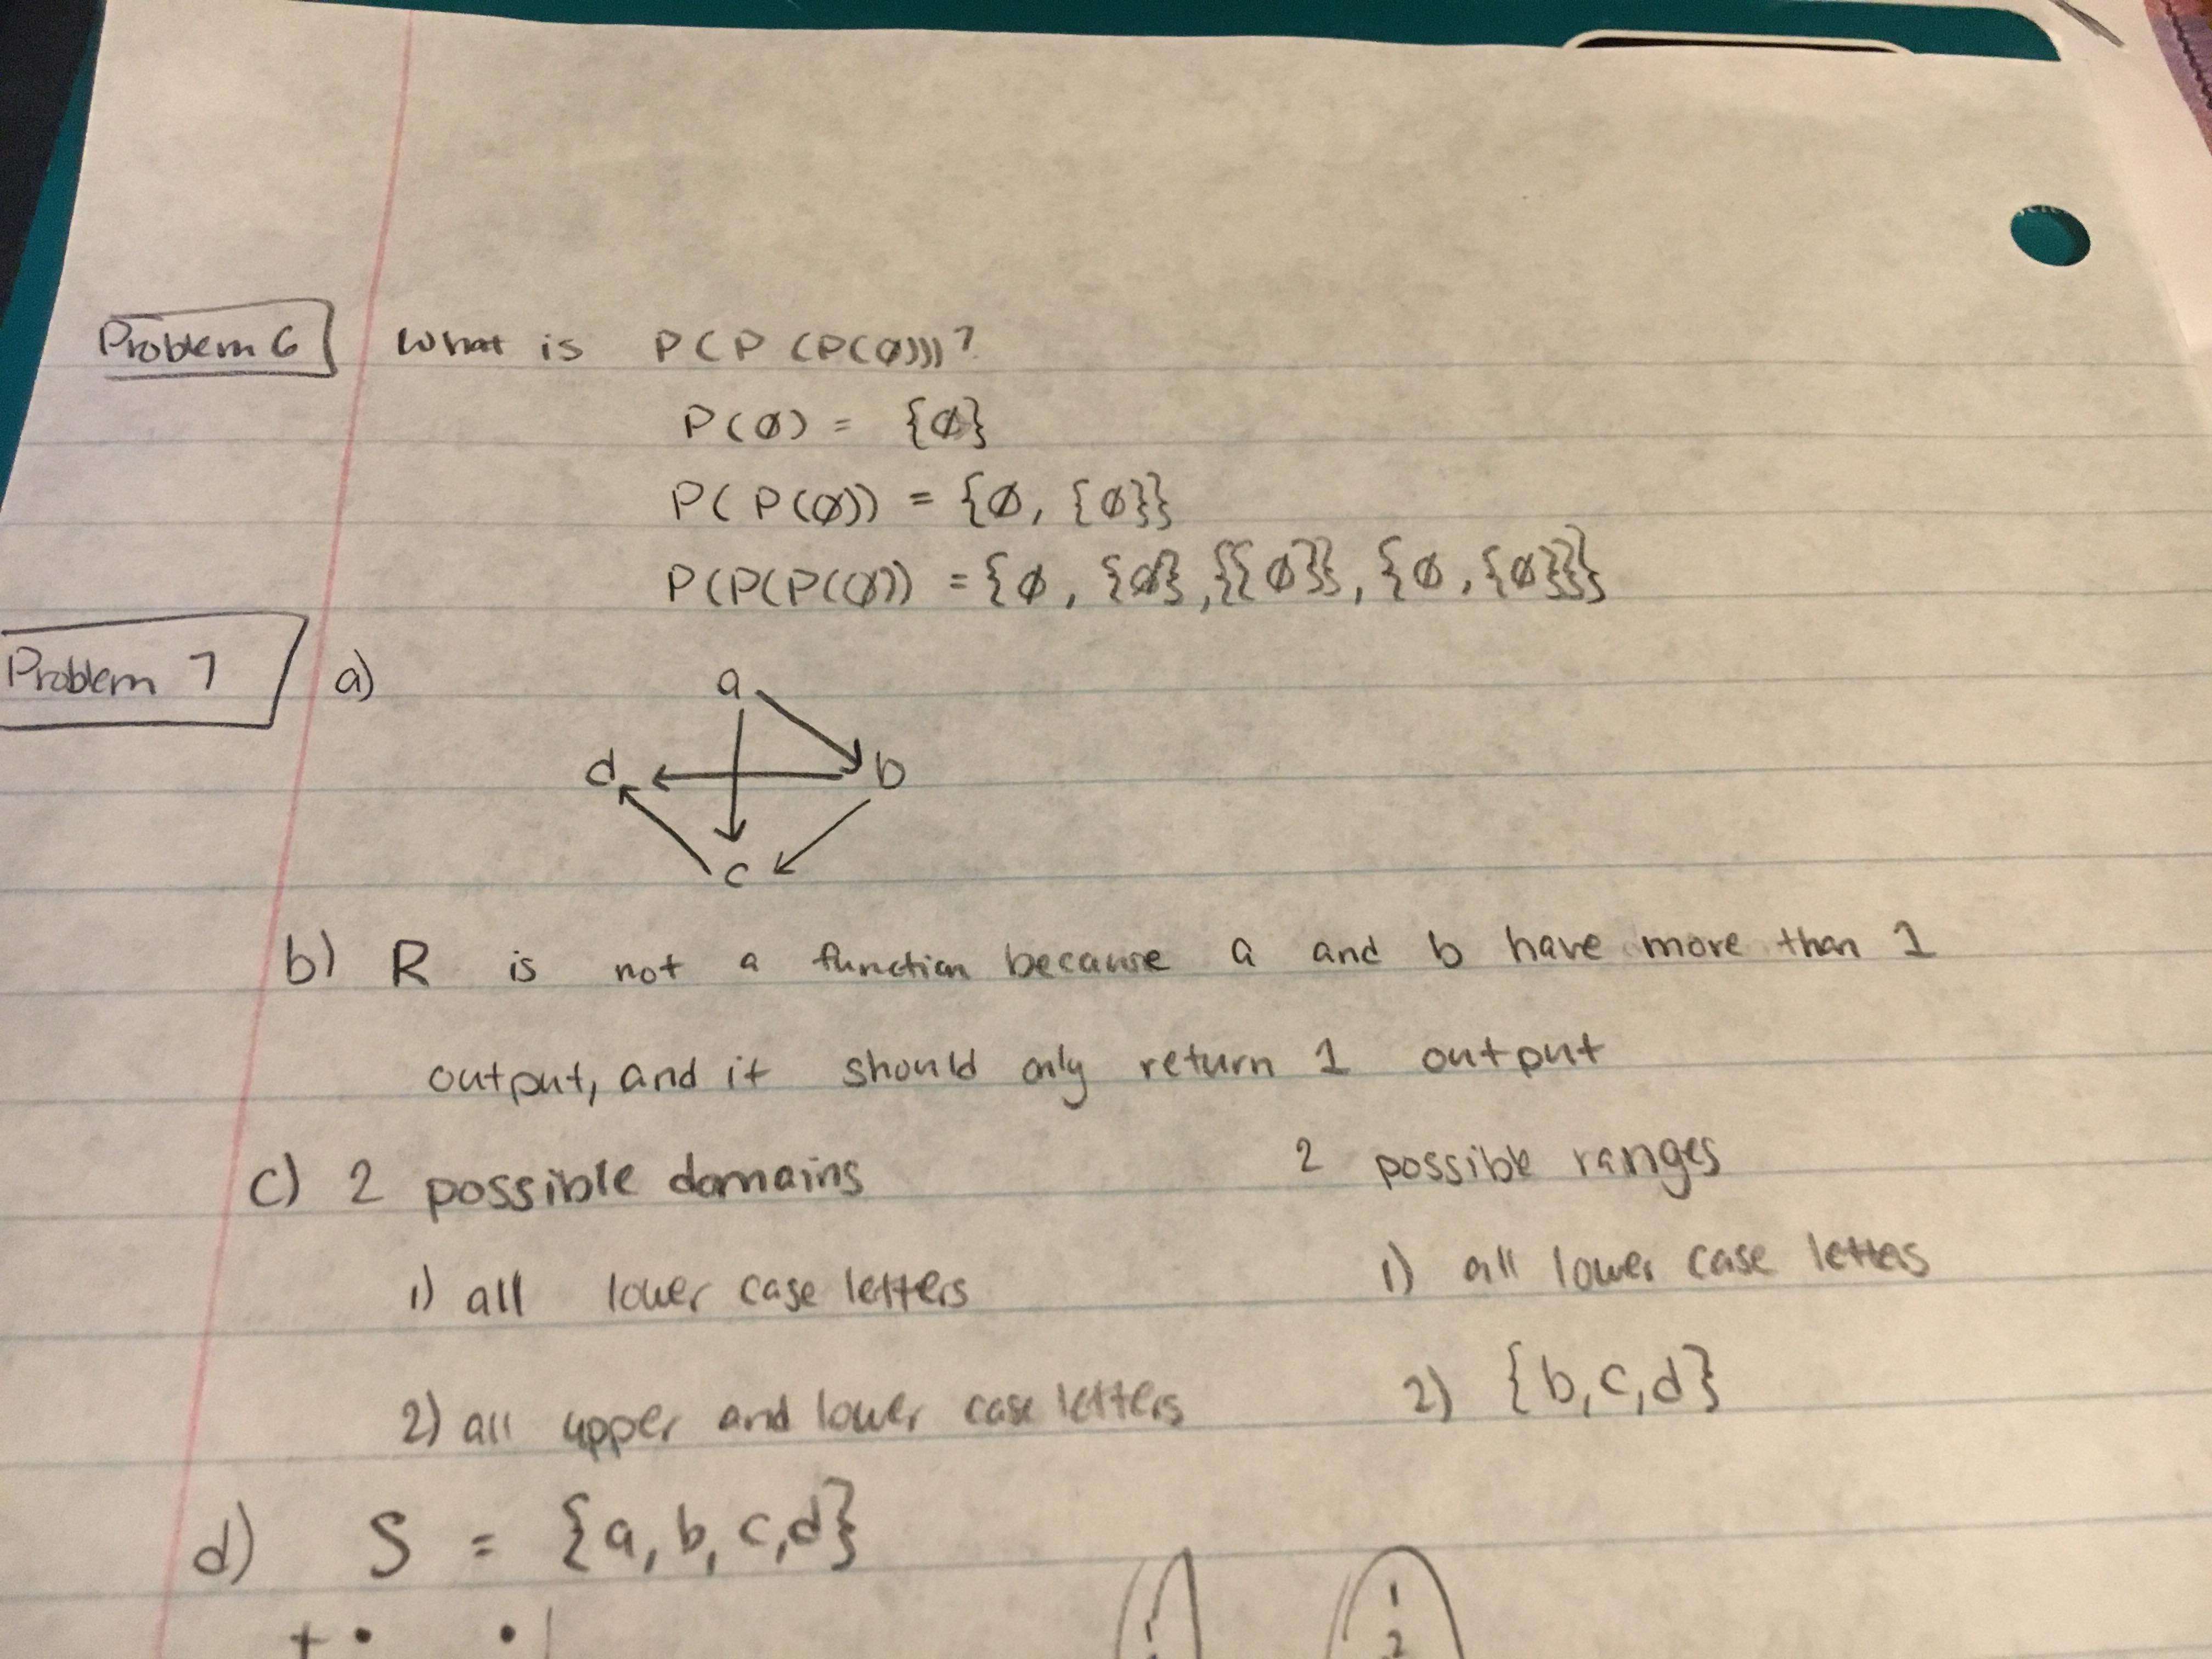 Problem 6 What is P(P(P(∅)))?
P(∅) = {∅}
P(P(∅)) = {∅, {∅}}
P(P(P(∅)) = {∅, {∅}, {{∅}}, {∅, {∅}}}
Problem 7 a)
a
d b
c
b) R is not a function because a and b have more than 1
output, and it should only return 1 output
c) 2 possible domains 2 possible ranges
1) all lower case letters 1) all lower case letters
2) all upper and lower case letters 2) {b,c,d}
d) S = {a, b, c,d}
1 1
2